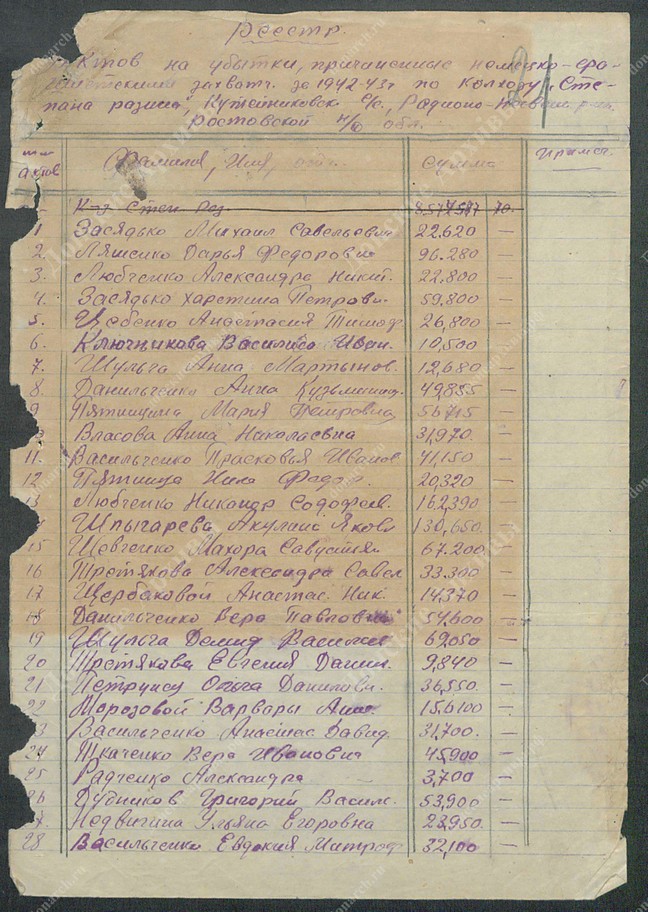 Реестр.
Актов на убытки, причиненные немецко-фа-
шистскими захватч. за 1942-43г по колхозу „Сте-
пана разина", Кутейниковск с/с., Родионо-
Ростовской обл.
21
актов Фамилия, Имя, отч. сумма Примеч.
К-з Степ Раз.
1 Засядько Михаил Савельевич 22,620 —
2. Ляшенко Дарья Федоровн 96.280 —
3. Любченко Александра Никит. 22,800 —
4. Засядько Харетина Петровн. 59,800 —
5. Анастасия Тимоф. 26,800 —
6. Ключникова Василиса Иван. 10,500 —
7. Шульга Анна Мартынов. 12,680 —
8. Данильченко Анна Кузьминиц. 49,855 —
9 Мария 56715 —
Власова Анна Николаевна 31,970. —
11. Васильченко Прасковья Иванов 41,150 —
12 Пятница Нина Федор. 20,320 —
13 Любченко Никанор 162,390 —
Шпыгарева Акулина Яковл 130,650. —
15 Шевченко Махора 67.200 —
16 Третякова Александра Савел 33.300 —
17 Щербаковой Анастас. Ник. 14,370 —
18 Данильченко Вера Павловн 54,600 —
19 Шульга Демид Василь 69,050 —
20 Третякова Евгения Данил. 9,840 —
21 Ольга Даниловн. 36,550. —
22 Морозовой Варвары 156100 —
23 Васильченко Анастас Давид. 31,700. —
24 Ткаченко Вера Ивановна 45,900 —
25 Радченко Александра 3,700 —
26 Дудников Григорий Васил. 53,900 —
7 Недвигина Ульяна Егоровна 23,950. —
28 Васильченко Евдокия Митроф 32,100 —